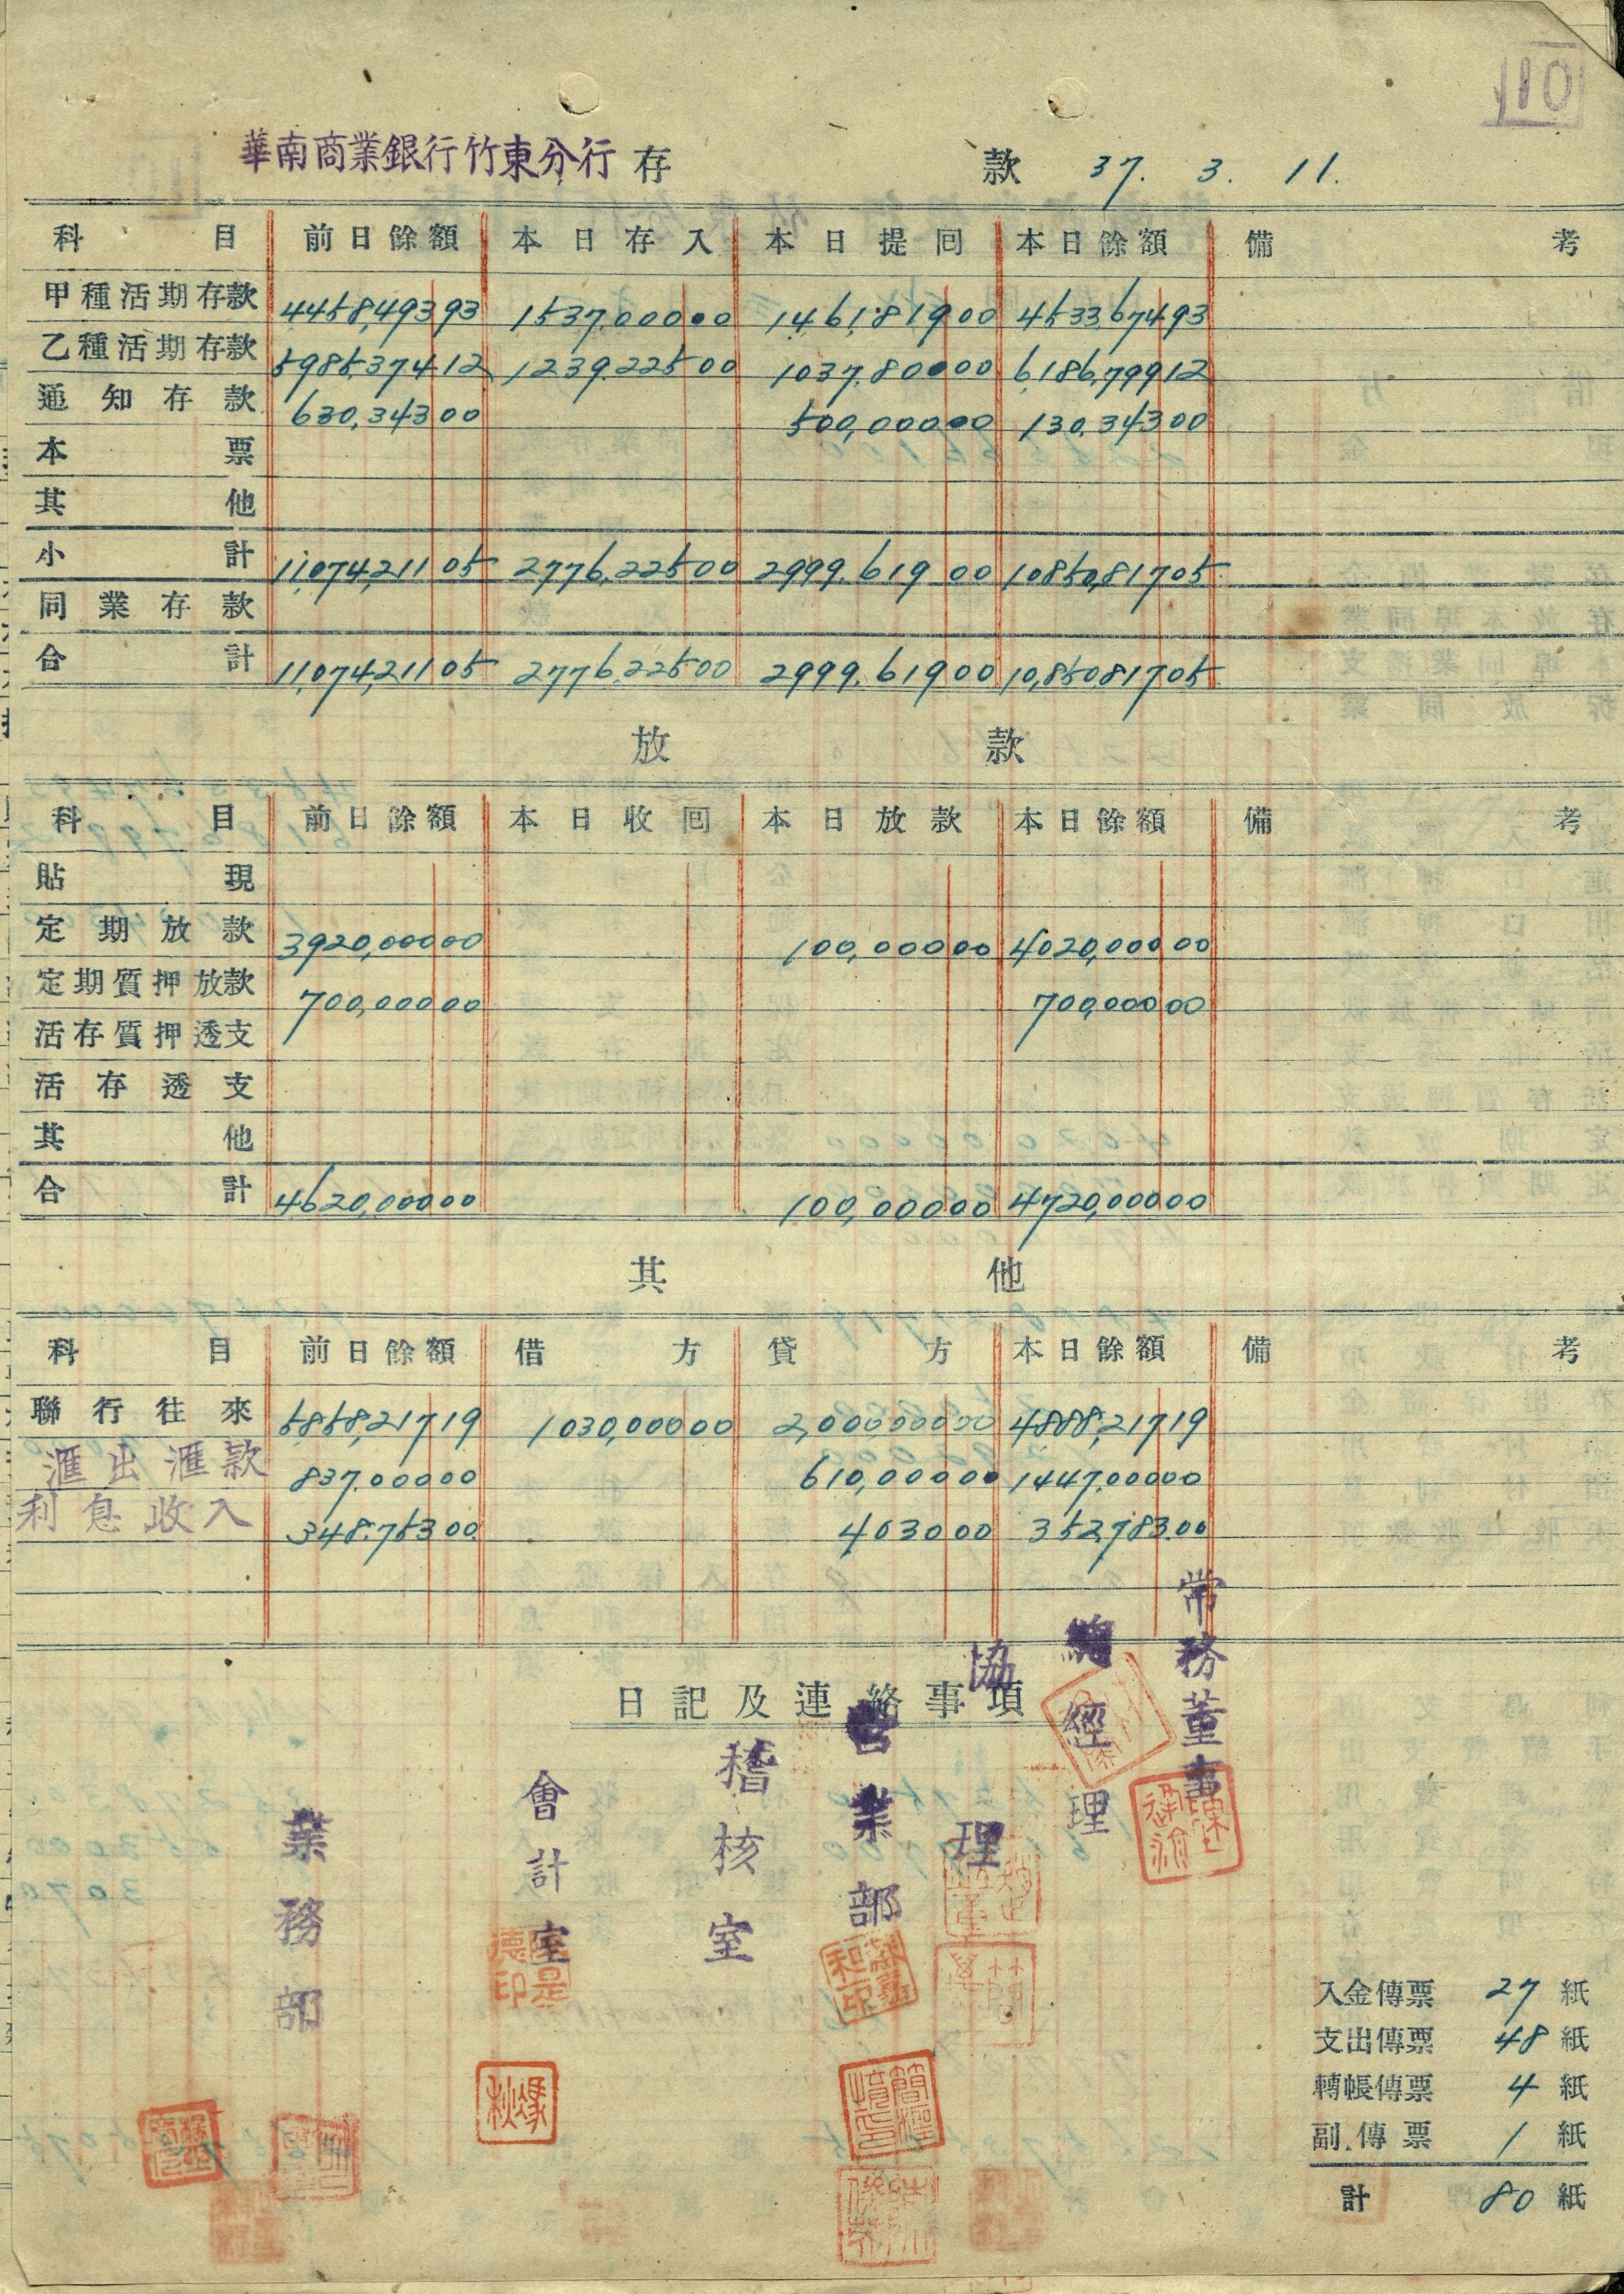 10
華南商業銀行竹東分行 存 款 37. 3. 11.
科目 前日餘額 本日存入 本日提回 本日餘額 備考
甲種活期存款 4458,493 93 1537,000 00 1,461,819 00 4533,674 93
乙種活期存款 5985,374 12 1239,225 00 1037,800 00 6,186,799 12
通知存款 630,343 00 500,000 00 130,343 00
本票
其他
小計 11,074,211 05 2776,225 00 2999,619 00 10,850,817 05
同業存款
合計 11,074,211 05 2776,225 00 2999,619 00 10,850,817 05
放款
科目 前日餘額 本日收回 本日放款 本日餘額 備考
貼現
定期放款 3920,000 00 100,000 00 4020,000 00
定期質押放款 700,000 00 700,000 00
活存質押透支
活存透支
其他
合計 4620,000 00 100,000 00 4720,000 00
其他
科目 前日餘額 借方 貸方 本日餘額 備考
聯行往來 5,858,217 19 1030,000 00 2,000,000 00 4888,217 19
滙出滙款 837,000 00 610,000 00 1447,000 00
利息收入 348,753 00 4,030 00 352,783 00
日記及連絡事項
常務董事
總經理
協理
營業部
稽核室
會計室
業務部
入金傳票 27 紙
支出傳票 48 紙
轉帳傳票 4 紙
副傳票 1 紙
計 80 紙